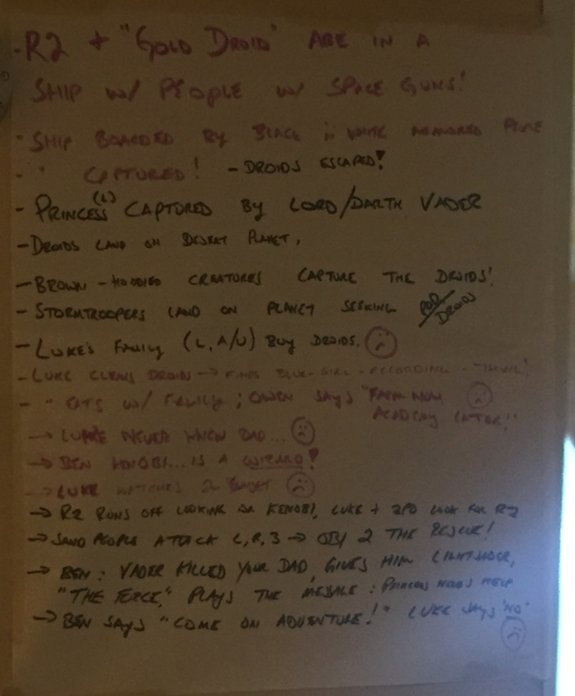 - R2 + "GOLD DROID" ARE IN A
SHIP W/ PEOPLE W/ SPACE GUNS!
- SHIP BOARDED BY BLACK N WHITE ARMORED PEOPLE
- " CAPTURED! - DROIDS ESCAPED!
- PRINCESS (L) CAPTURED BY LORD/DARTH VADER
- DROIDS LAND ON DESERT PLANET.
- BROWN-HOODED CREATURES CAPTURE THE DROIDS!
- STORMTROOPERS LAND ON PLANET SEEKING POD/DROIDS
- LUKE'S FAMILY (L, A/U) BUY DROIDS. ☹
- LUKE CLEANS DROIDS → FINDS BLUE-GIRL-RECORDING-
- " EATS W/ FAMILY; OWEN SAYS "FARM NOW, ☹
ACADEMY LATER!"
→ LUKE NEVER KNEW DAD... ☹
→ BEN KNOBI... IS A WIZARD!
→ LUKE WATCHES 2 ☹
→ R2 RUNS OFF LOOKING FOR KENOBI, LUKE + 3PO LOOK FOR R2
→ SAND PEOPLE ATTACK L, R, 3 → OBI 2 THE RESCUE!
→ BEN: VADER KILLED YOUR DAD, GIVES HIM LIGHTSABER,
"THE FORCE," PLAYS THE MESSAGE: PRINCESS NEEDS HELP
→ BEN SAYS "COME ON ADVENTURE!" LUKE SAYS "NO" ☹